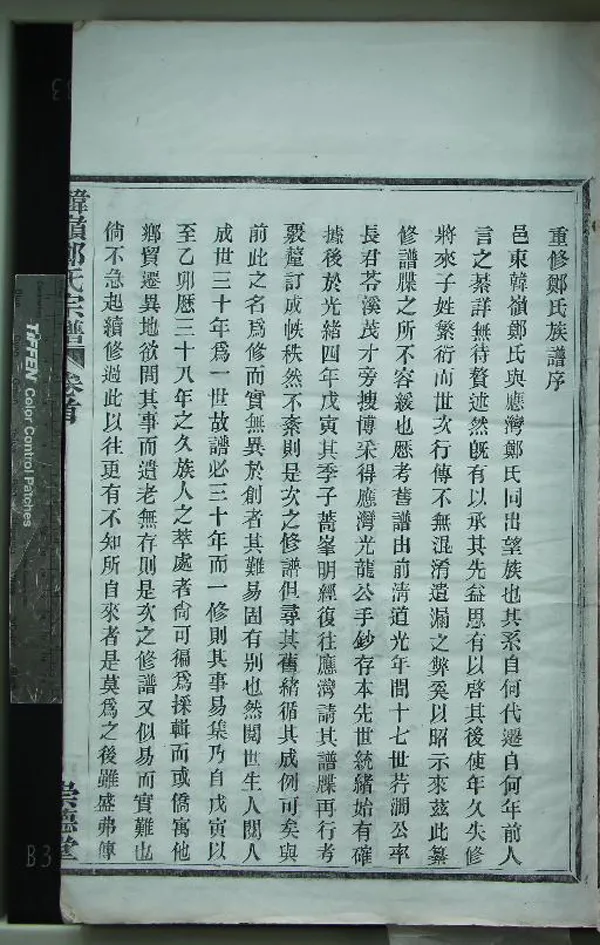 重修鄭氏族譜序
邑東韓嶺鄭氏與應灣鄭氏同出望族也其系自何代遷自何年前人
言之綦詳無待贅述然旣有以承其先益思有以啓其後使年久失修
將來子姓繁衍而世次行傳不無混淆遺漏之弊奚以昭示來茲此纂
修譜牒之所不容緩也歷考舊譜由前淸道光年間十七世若澗公率
長君苓溪茂才旁搜博采得應灣光龍公手鈔存本先世統緒始有確
據後於光緒四年戊寅其季子蒿峯明經復往應灣請其譜牒再行考
覈釐訂成帙秩然不紊則是次之修譜但尋其舊緒循其成例可矣與
前此之名爲修而實無異於創者其難易固有別也然閱世生人閱人
成世三十年爲一世故譜必三十年而一修則其事易集乃自戊寅以
至乙卯歷三十八年之久族人之萃處者尙可徧爲採輯而或僑寓他
鄉貿遷異地欲問其事而遺老無存則是次之修譜又似易而實難也
倘不急起續修過此以往更有不知所自來者是莫爲之後雖盛弗傳
韓嶺鄭氏宗譜 卷首 崇德堂
TIFFEN Color Control Patches
B3